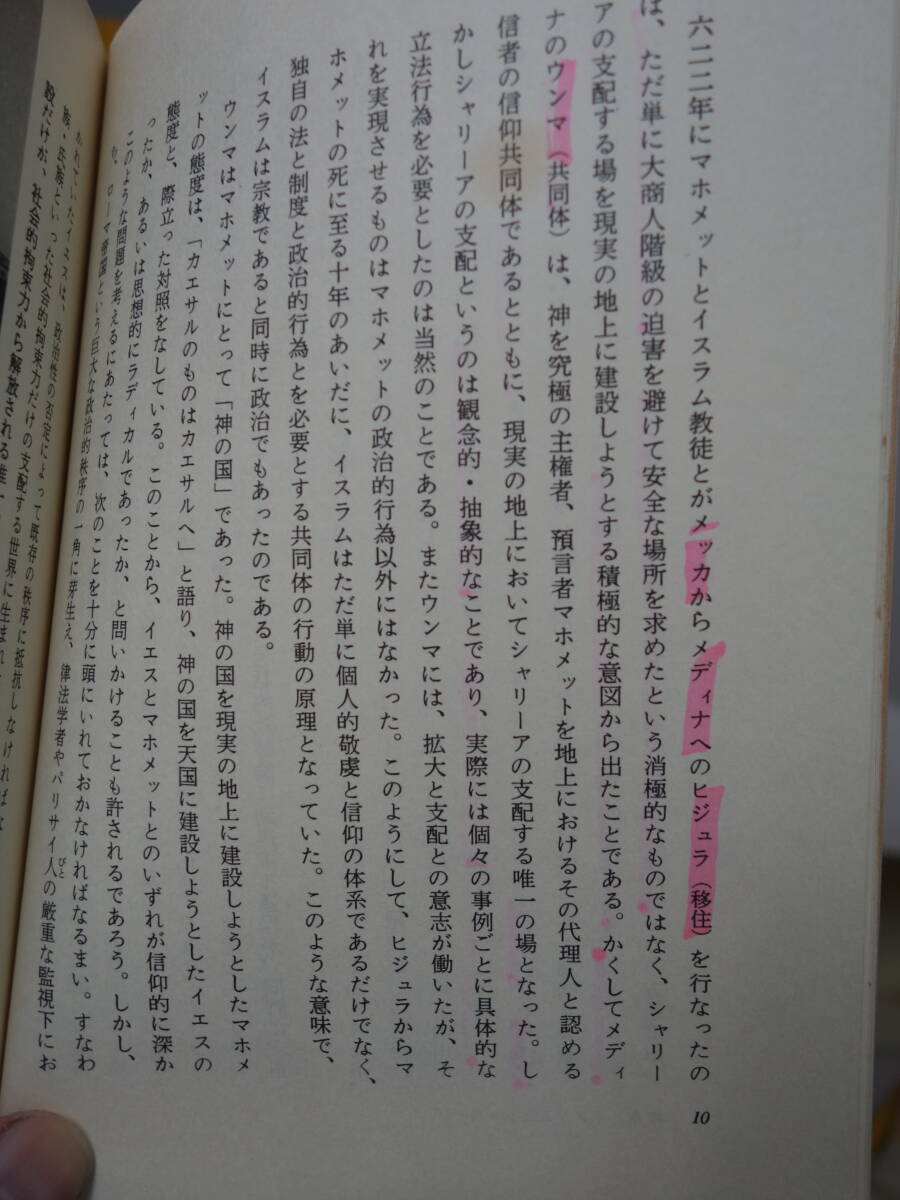 六二二年にマホメットとイスラム教徒とがメッカからメディナへのヒジュラ（移住）を行なったの
は、ただ単に大商人階級の迫害を避けて安全な場所を求めたという消極的なものではなく、シャリー
アの支配する場を現実の地上に建設しようとする積極的な意図から出たことである。かくしてメディ
ナのウンマ（共同体）は、神を究極の主権者、預言者マホメットを地上におけるその代理人と認める
信者の信仰共同体であるとともに、現実の地上においてシャリーアの支配する唯一の場となった。し
かしシャリーアの支配というのは観念的・抽象的なことであり、実際には個々の事例ごとに具体的な
立法行為を必要としたのは当然のことである。またウンマには、拡大と支配との意志が働いたが、そ
れを実現させるものはマホメットの政治的行為以外にはなかった。このようにして、ヒジュラからマ
ホメットの死に至る十年のあいだに、イスラムはただ単に個人的敬虔と信仰の体系であるだけでなく、
独自の法と制度と政治的行為とを必要とする共同体の行動の原理となっていた。このような意味で、
イスラムは宗教であると同時に政治でもあったのである。
ウンマはマホメットにとって「神の国」であった。神の国を現実の地上に建設しようとしたマホメ
ットの態度は、「カエサルのものはカエサルへ」と語り、神の国を天国に建設しようとしたイエスの
態度と、際立った対照をなしている。このことから、イエスとマホメットとのいずれが信仰的に深か
ったか、あるいは思想的にラディカルであったか、と問いかけることも許されるであろう。しかし、
このような問題を考えるにあたっては、次のことを十分に頭にいれておかなければなるまい。すなわ
ち、ローマ帝国という巨大な政治的秩序の一角に芽生え、律法学者やパリサイ人びとの厳重な監視下にお
かれていたイエスは、政治性の否定によって既存の秩序に抵抗しなければ
族・氏族といった社会的拘束力だけの支配する世界に生まれ
設だけが、社会的拘束力から解放される唯一
10